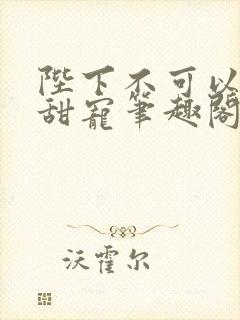 陛下不可以
甜宠笔趣阁
沃霍尔